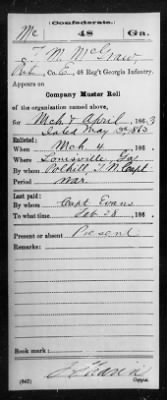 Confederate.
Mc 48 Ga.
T. M. McGraw
Pvt, Co. E, 48 Reg't Georgia Infantry.
Appears on
Company Muster Roll
of the organization named above,
for Mch & April, 1863
dated May 1863
Enlisted:
When Mch 4, 186
Where Louisville, Ga
By whom Polhill, T N Capt
Period War
Last paid:
By whom Capt Evans
To what time Feb 28, 186
Present or absent Present
Remarks:
Book mark:
(642) Copyist.